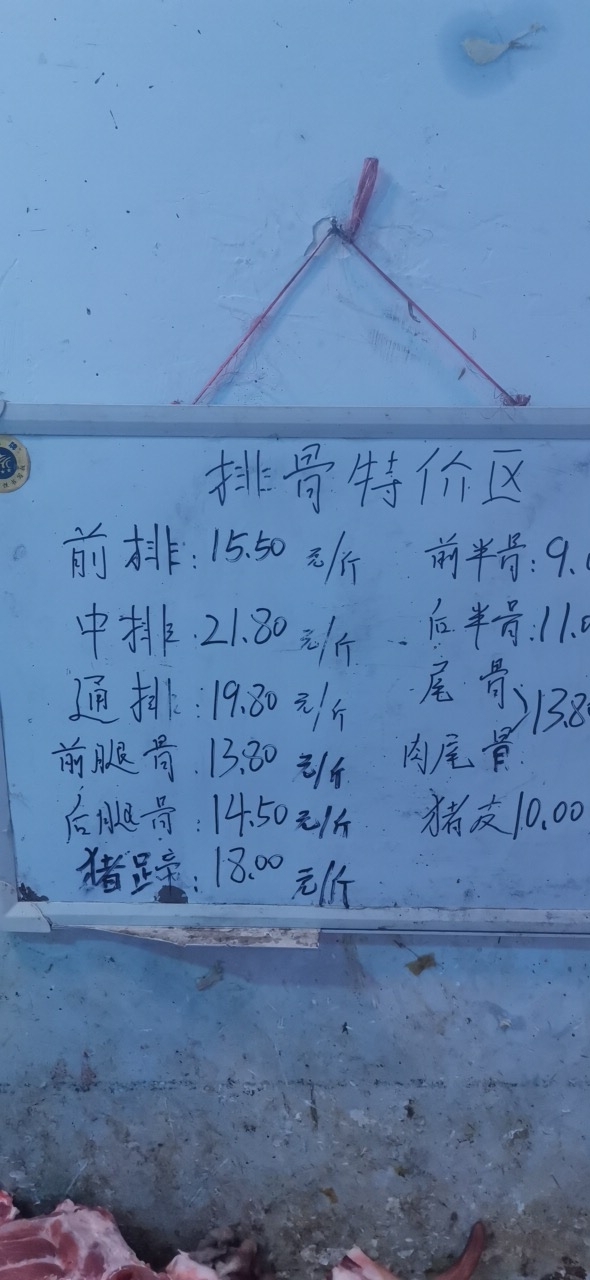 排骨特价区
前排:15.50 元/斤
中排:21.80 元/斤
通排:19.80 元/斤
前腿骨 13.80 元/斤
后腿骨:14.50 元/斤
猪蹄:18.00 元/斤
前半骨:9.
后半骨:11.0
尾骨
13.80
肉尾骨
猪皮10.00